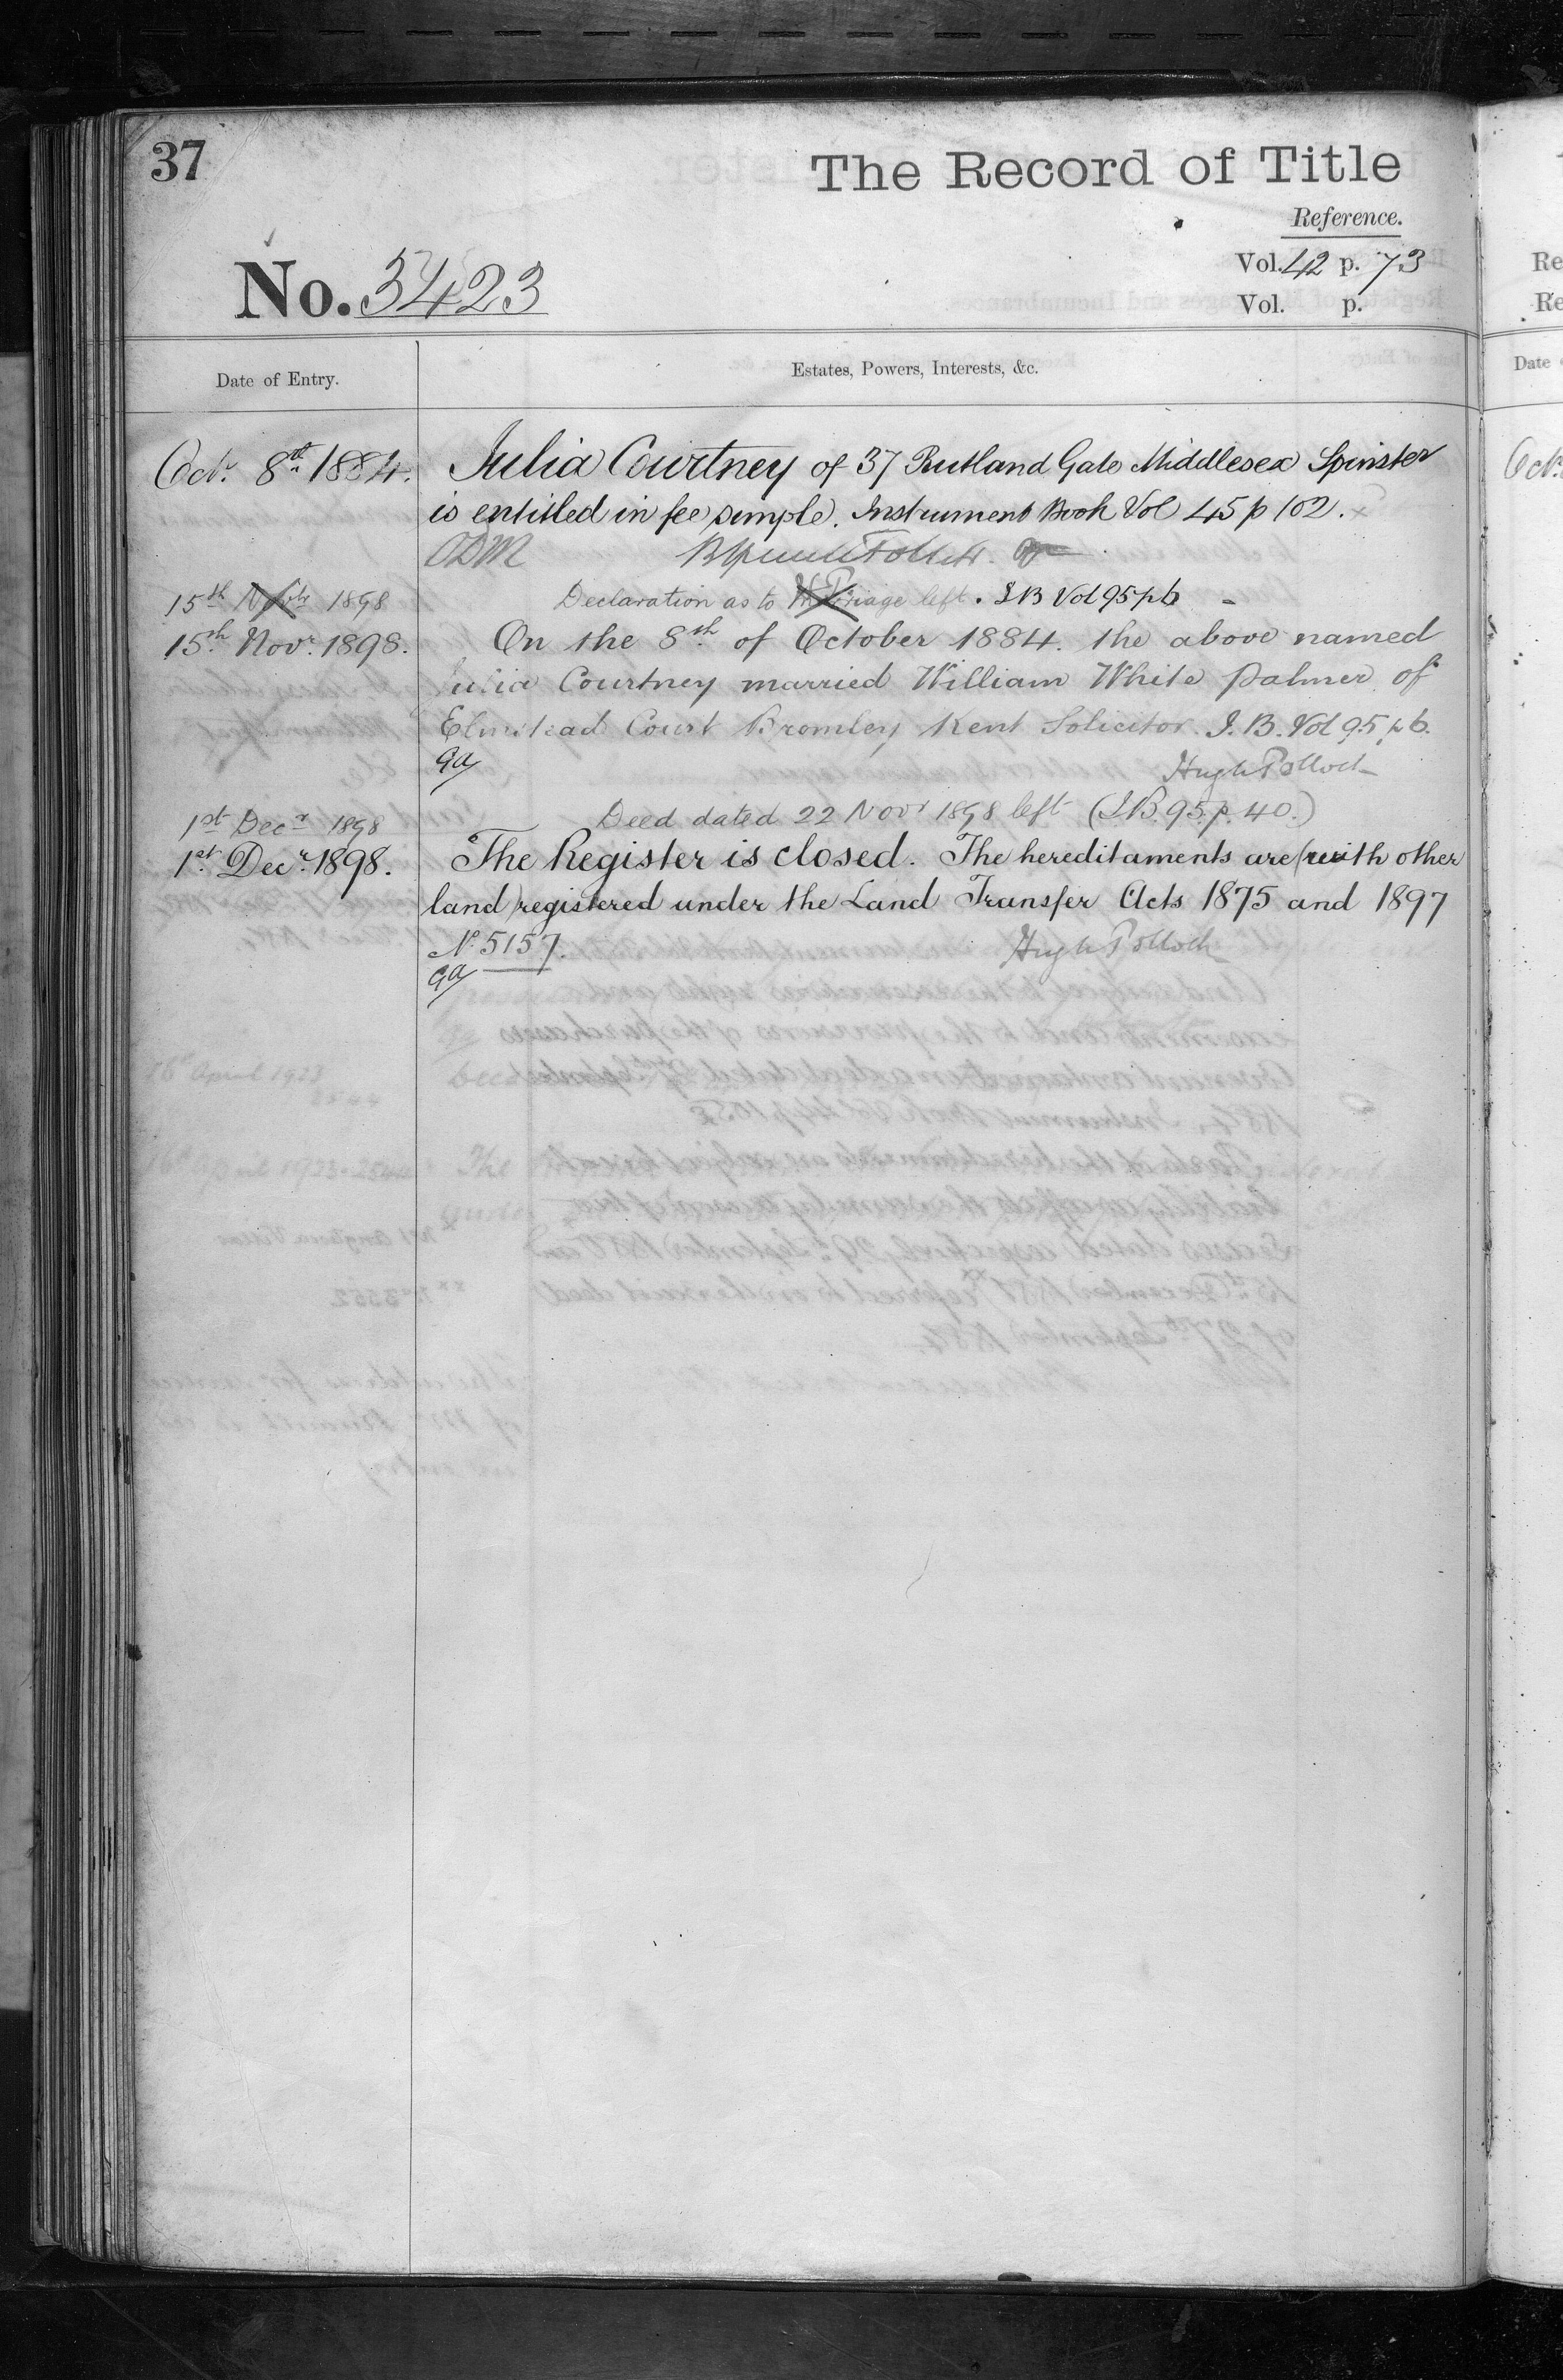 37
The Record of Title
Reference.
Vol. 42 p. 73
No. 3423
Vol. p.
Date of Entry.
Estates, Powers, Interests, &c.
Octr. 8th 1884.
Julia Courtney of 37 Rutland Gate Middlesex Spinster
is entitled in fee simple. Instrument Book Vol 45 p 102.
15th 1898
Declaration as to left. I B Vol 95 p 6
15th Novr. 1898.
On the 8th of October 1884. the above named
Julia Courtney married William White Palmer of
Elmstead Court Bromley Kent Solicitor. I. B. Vol 95 p 6.
Hugh Pollock
1st Decr 1898
Deed dated 22 Novr 1898 left (I.B. 95. p. 40.)
1st Decr. 1898.
The Register is closed. The hereditaments are (with other
land) registered under the Land Transfer Acts 1875 and 1897
No. 5157.
Hugh Pollock
Re
Re
Date
Oct.